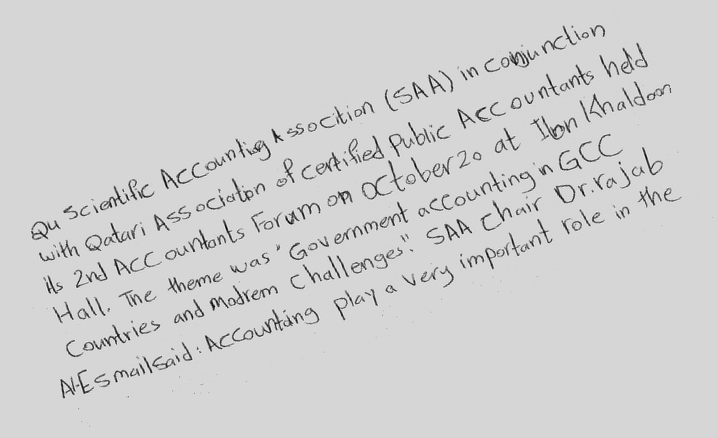 Qu Scientific Accounting Assocition (SAA) in conjunction
with Qatari Association of certified Public Accountants held
its 2nd Accountants Forum on October 20 at Ibn Khaldoon
Hall. The theme was "Government accounting in GCC
Countries and modrem Challenges". SAA Chair Dr. rajab
Al-Esmail said: Accounting play a very important role in the